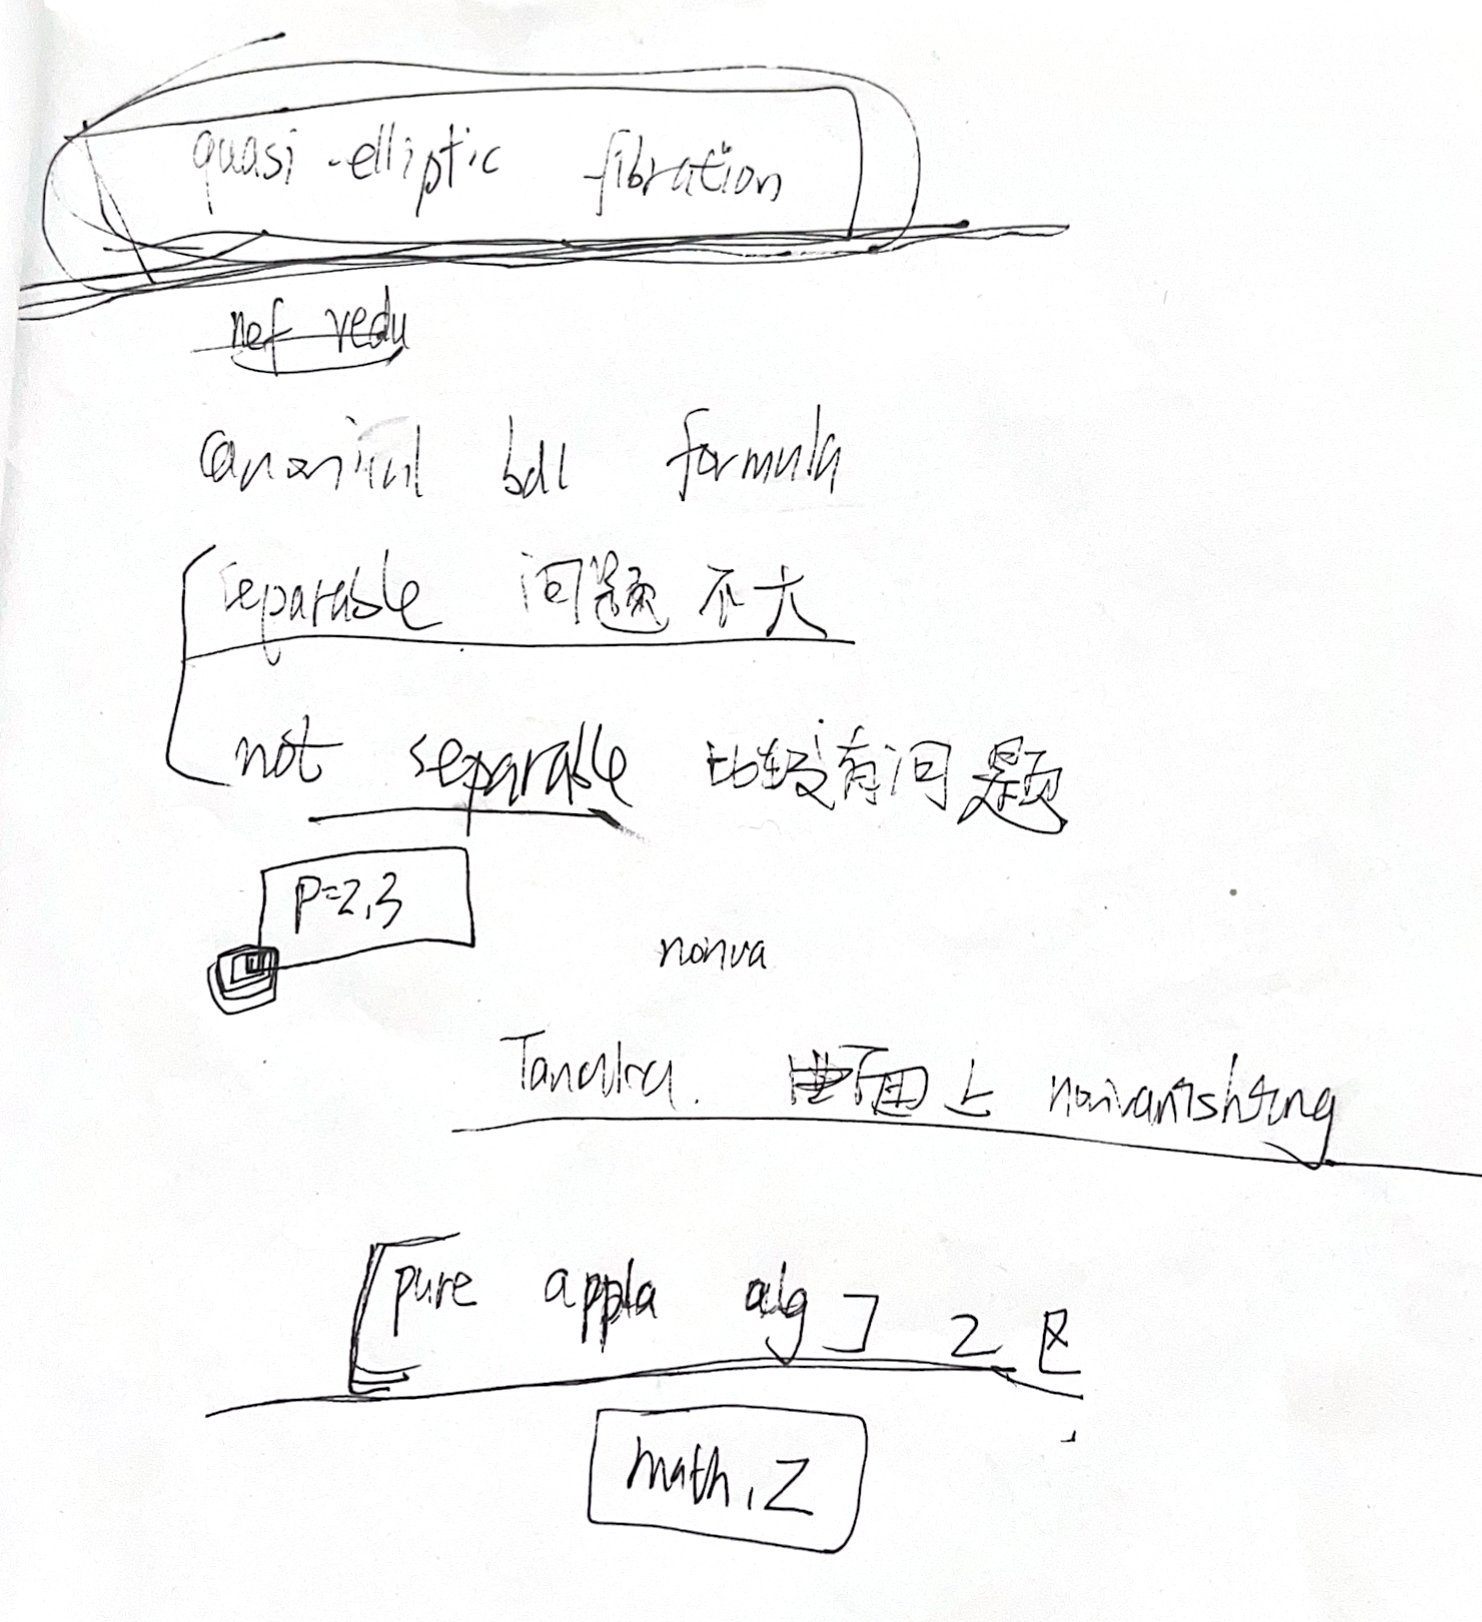 quasi-elliptic fibration
nef redu
canonical bdl formula
separable 问题不大
not separable 比较有问题
P=2,3
nonva
Tanaka. 曲面上 nonvanishing
[pure appla alg] 2区
math. Z